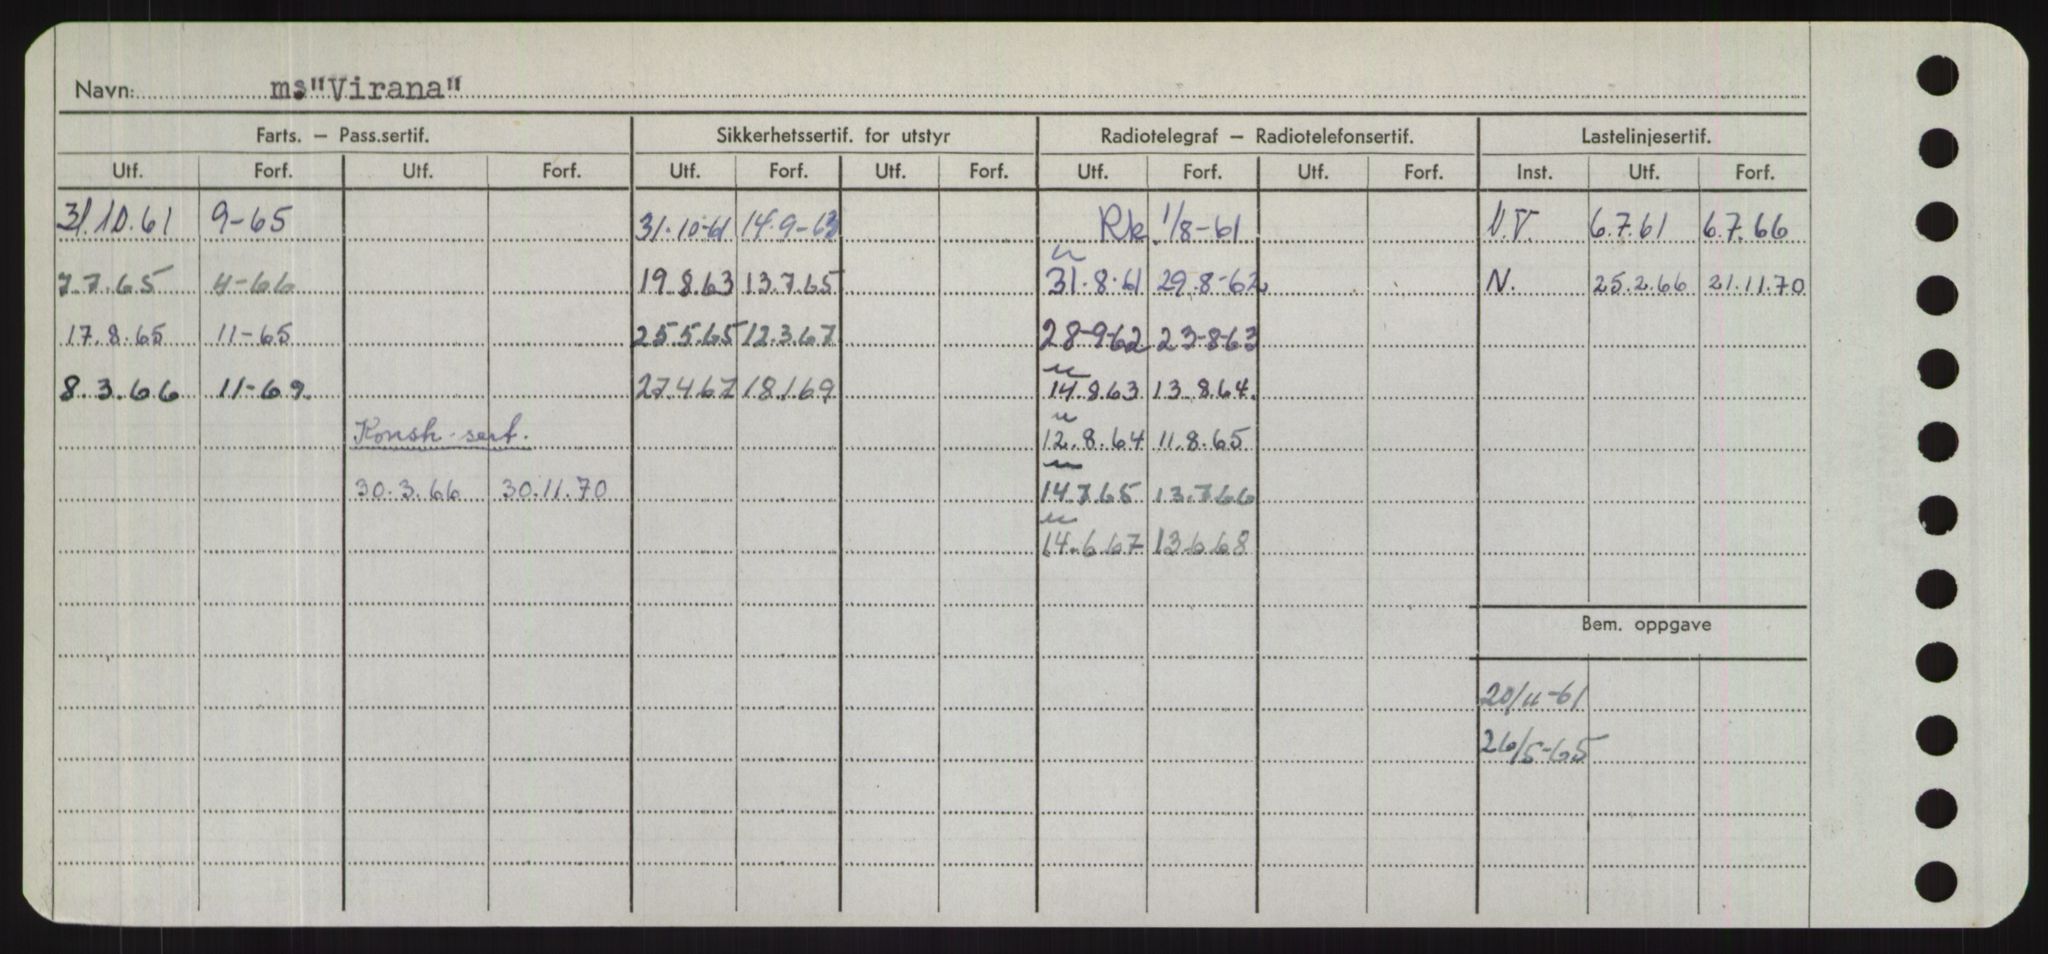 Navn: ms"Virana"
Farts. – Pass.sertif. Sikkerhetssertif. for utstyr Radiotelegraf – Radiotelefonsertif. Lastelinjesertif.
Utf. Forf. Utf. Forf. Utf. Forf. Utf. Forf. Utf. Forf. Utf. Forf. Inst. Utf. Forf.
31.10.61 9-65 31.10-61 14.9-63 Rk. 1/8-61 N.V. 6.7.61 6.7.66
7.7.65 4-66 19.8.63 13.7.65 31.8.61 29.8-62 N. 25.2.66 21.11.70
17.8.65 11-65 25.5.65 12.3.67 28-9-62 23-8-63
8.3.66 11-69. 27.4.67 18.1.69 14.8.63 13.8.64.
Konstr.-sert. 12.8.64 11.8.65
30.3.66 30.11.70 14.7.65 13.7.66
14.6.67 13.6.68
Bem. oppgave
20/11-61
26/5-65